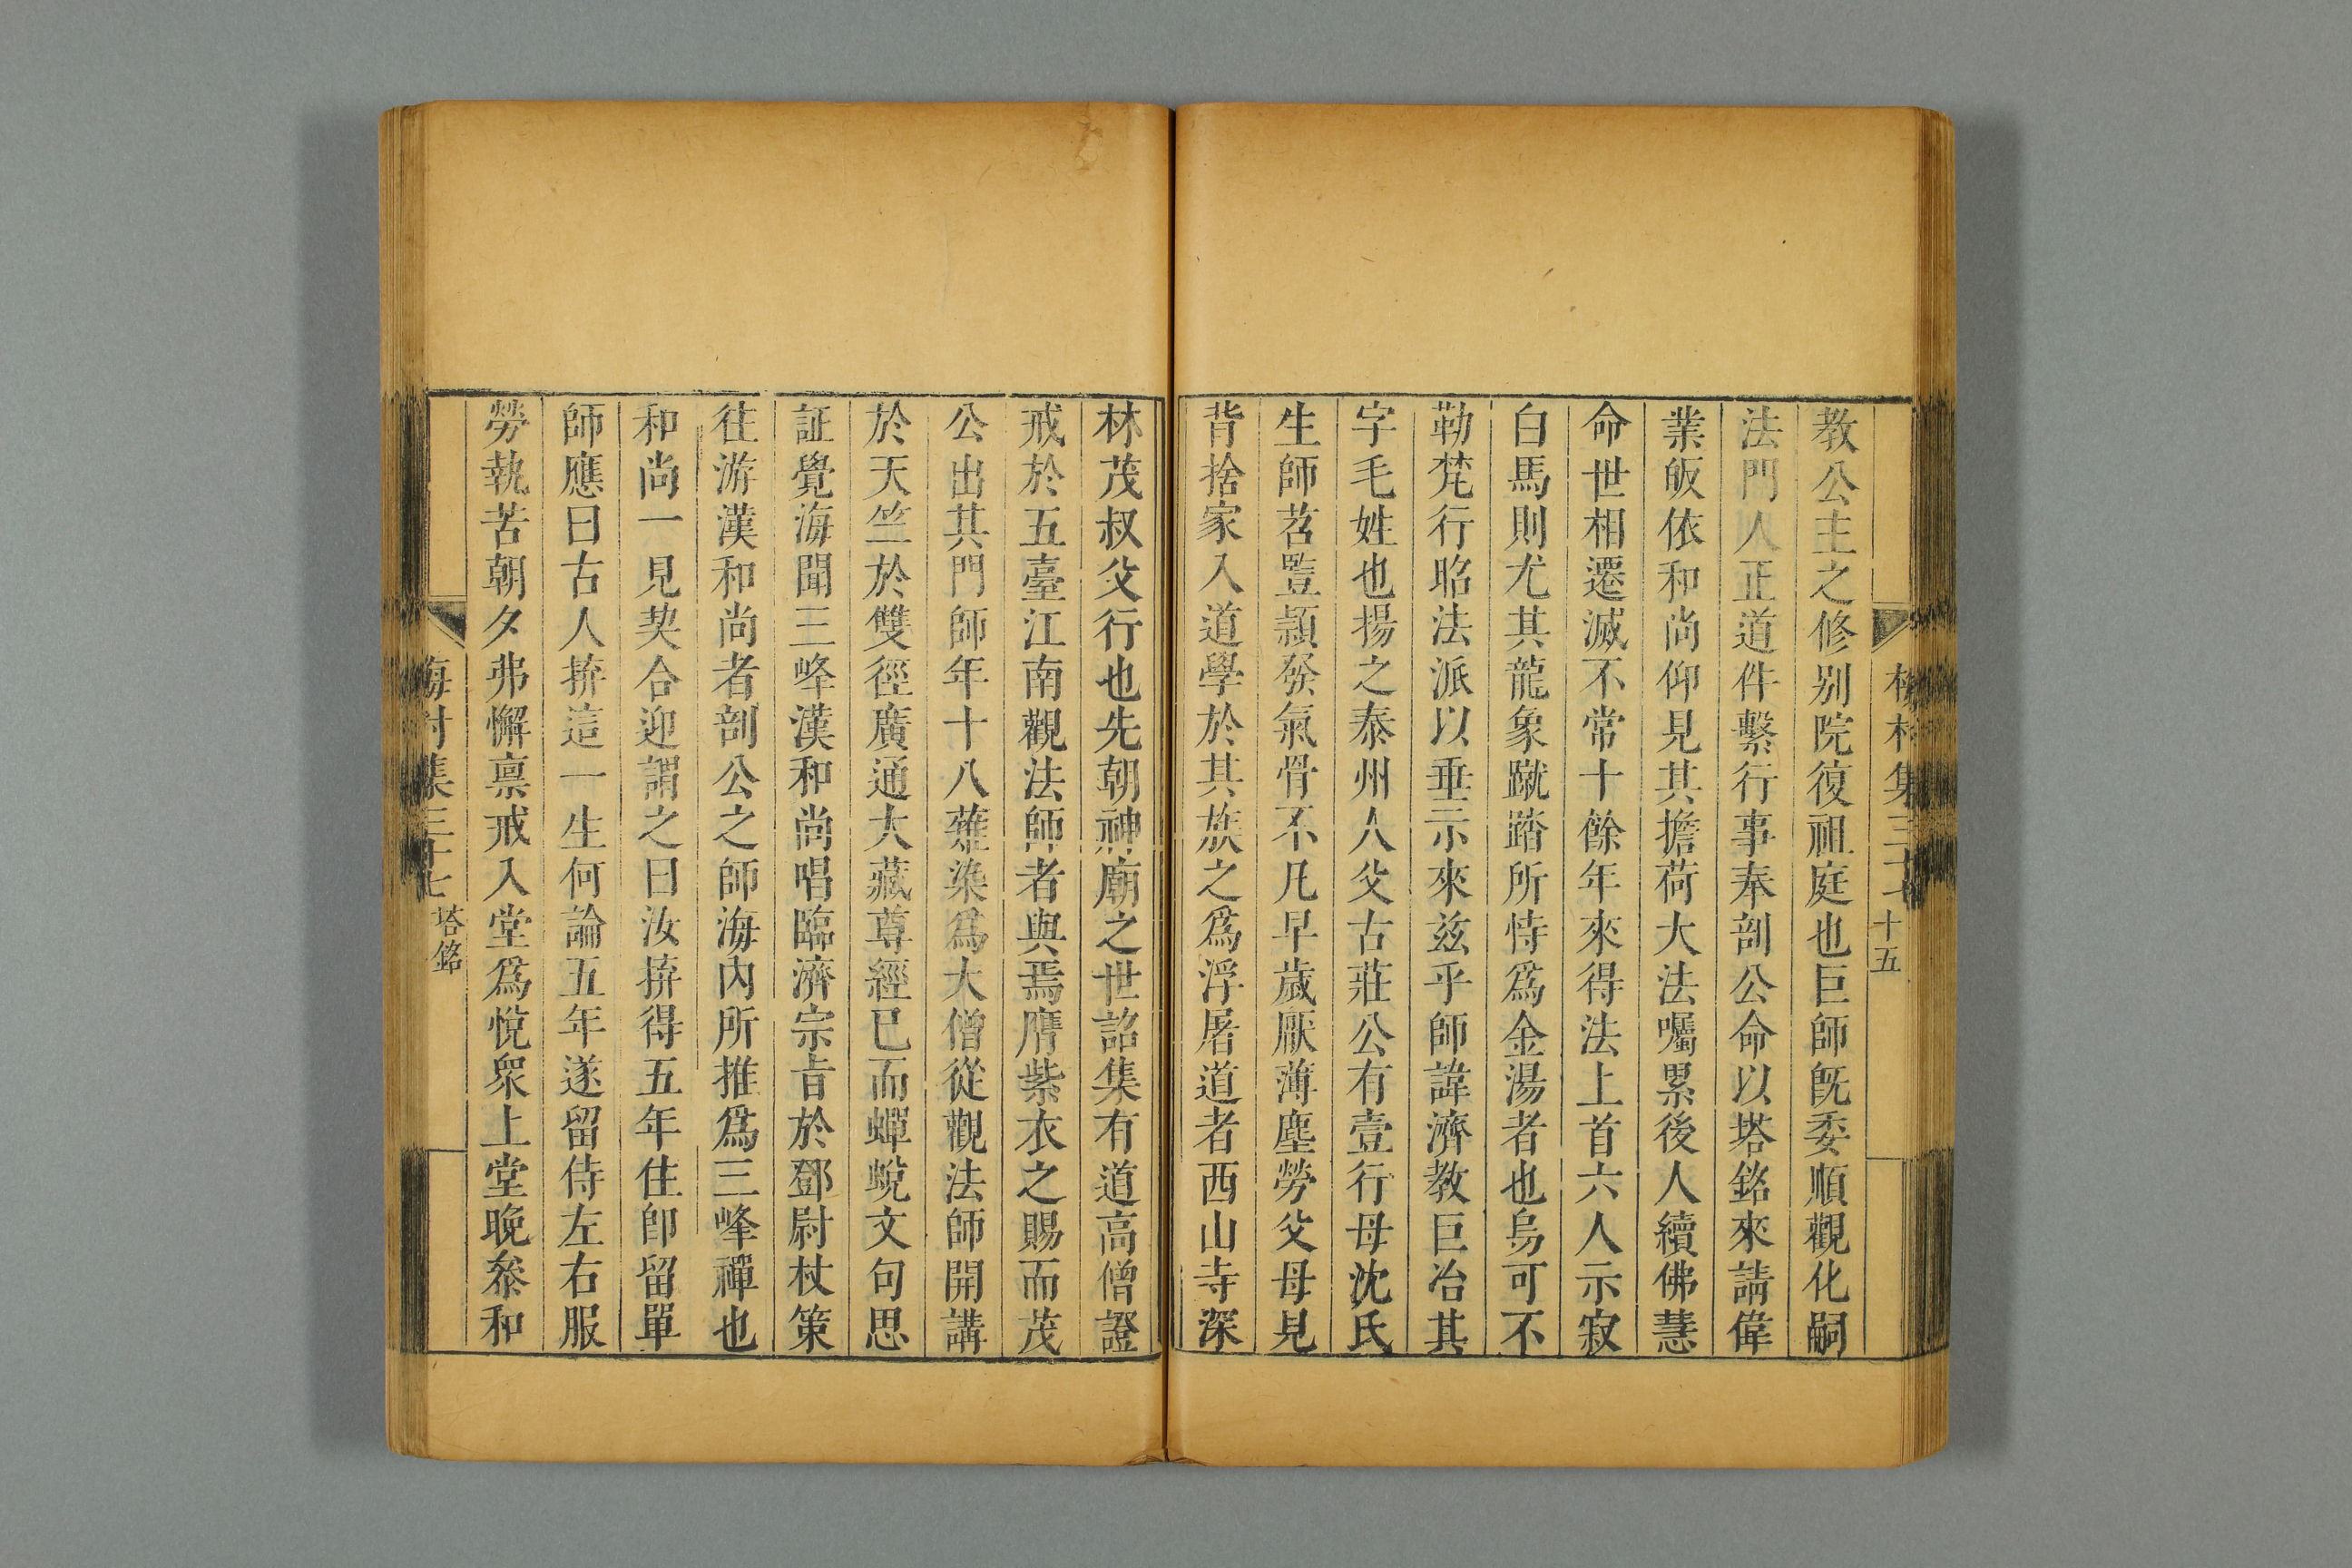 梅村集三十七 十五
教公主之修别院復祖庭也巨師旣委順觀化嗣
法門人正道件繫行事奉剖公命以塔銘來請偉
業皈依和尚仰見其擔荷大法囑累後人續佛慧
命世相遷滅不常十餘年來得法上首六人示寂
白馬則尤其龍象蹴踏所恃爲金湯者也烏可不
勒梵行昭法派以垂示來兹乎師諱濟教巨冶其
字毛姓也揚之泰州人父古莊公有壹行母沈氏
生師茖䜿頴發氣骨不凡早歲厭薄塵勞父母見
背捨家入道學於其族之爲浮屠道者西山寺深
林茂叔父行也先朝神廟之世詔集有道高僧證
戒於五臺江南觀法師者與焉膺紫衣之賜而茂
公出其門師年十八薙染爲大僧從觀法師開講
於天竺於雙徑廣通大藏尊經巳而蟬蛻文句思
証覺海聞三峰漢和尚唱臨濟宗旨於鄧尉杖策
往游漢和尚者剖公之師海内所推爲三峰禪也
和尚一見契合迎謂之曰汝拚得五年住卽留單
師應曰古人拚這一生何論五年遂留侍左右服
勞執苦朝夕弗懈禀戒入堂爲悅衆上堂晚叅和
梅村集三十七 塔銘